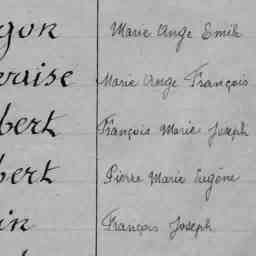 gon Marie Ange Emile
vaise Marie Ange François
bert François Marie Joseph
bert Pierre Marie Eugène
in François Joseph